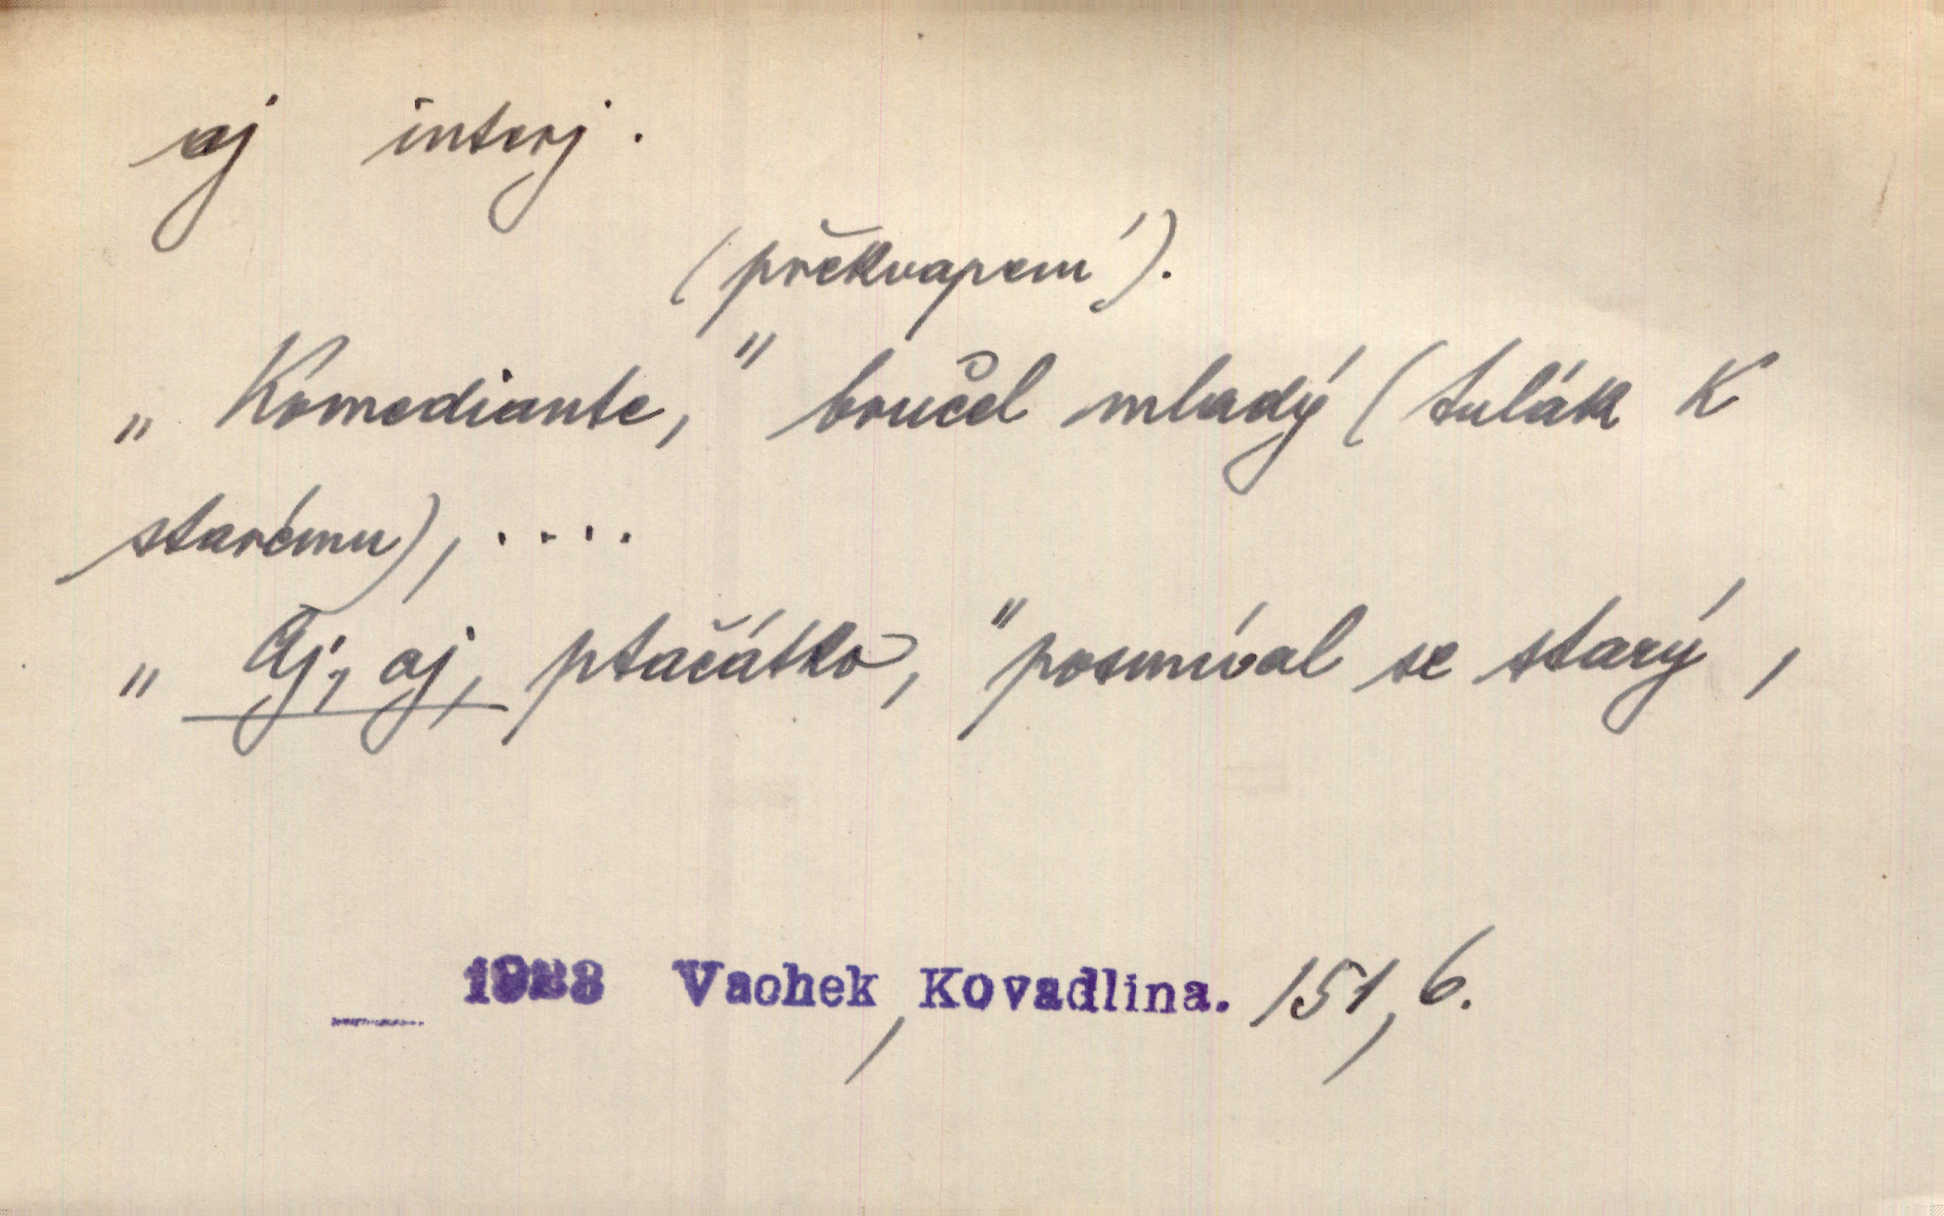 aj interj.
(překvapení).
„Komediante,“ bručel mladý (tulák k
starému), ....
„Aj, aj, ptačátko,“ posmíval se starý,
Vachek, Kovadlina. 151, 6.